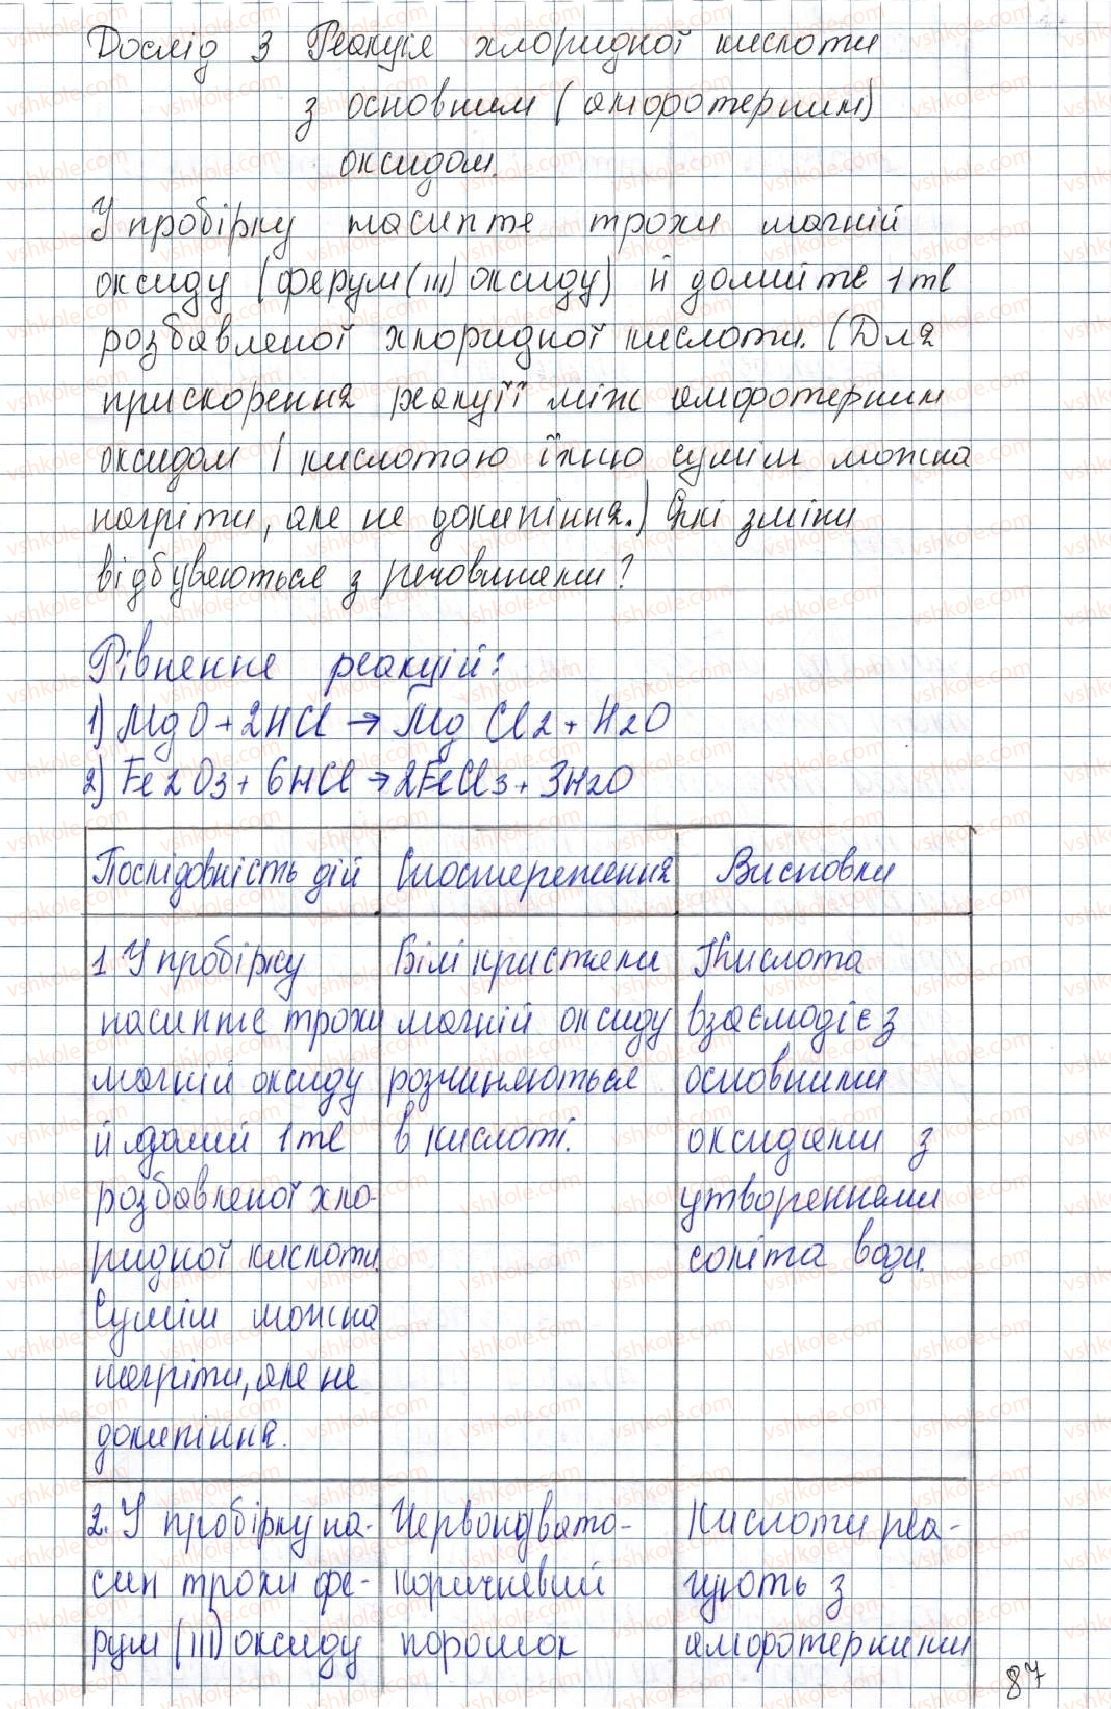 Дослід 3 Реакція хлоридної кислоти
з основним (амфотерним)
оксидом.
У пробірку насипте трохи магній
оксиду (ферум (III) оксиду) й долийте 1 ml
розбавленої хлоридної кислоти. (Для
прискорення реакції між амфотерним
оксидом і кислотою їхню суміш можна
нагріти, але не докипіння.) Які зміни
відбуваються з речовинами?
Рівнення реакцій:
1) MgO + 2HCl → MgCl2 + H2O
2) Fe2O3 + 6HCl → 2FeCl3 + 3H2O
Послідовність дій
Спостереження
Висновки
1 У пробірку
насипте трохи
магній оксиду
й долий 1 ml
розбавленої хло-
ридної кислоти.
Суміш можна
нагріти, але не
докипіння.
Білі кристали
магній оксиду
розчиняються
в кислоті.
Кислота
взаємодіє з
основними
оксидами з
утвореннями
солі та води.
2. У пробірку на-
сип трохи фе-
рум (III) оксиду
Червонувато-
коричневий
порошок
Кислоти реа-
гують з
амфотерними
87